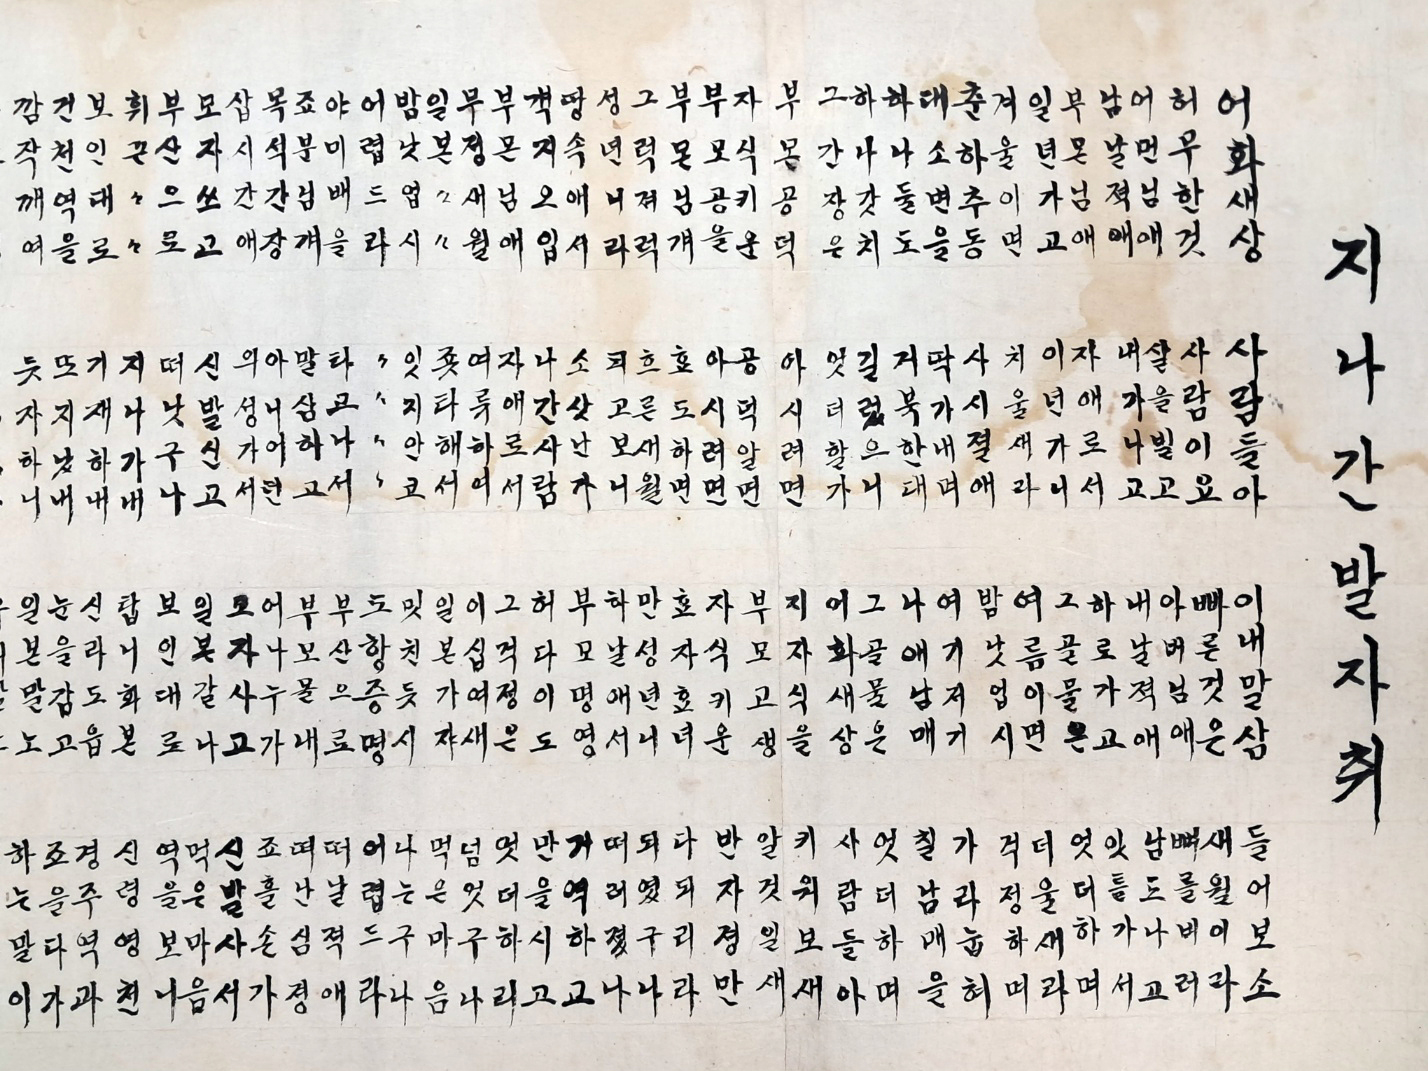 지나간발자취
어화새상 사람들아 이내말삼 들어보소
허무한것 사람이요 빠른것은 새월이라
어먼님애 살을빌고 아버님애 뼈를비러
남날젹애 내가나고 내날젹애 남도나고
부몬님애 자애로서 하로가고 잇틈가서
일년가고 이년가니 그골물은 엇더하며
겨울이면 치울새라 여름이면 더울새라
춘하추동 사시졀애 밤낫업시 걱정하며
대소변을 딱가내며 여기저거 가라눕혀
하나둘도 거북한대 나애남매 칠남매을
하나갓치 길렀으니 그골물은 엇더하며
그간장은 엇더할가 어화새상 사람들아
부몬공덕 아시려면 지자식을 키워보새
자식키운 공덕알면 부모고생 알것일새
부모공을 아시려면 자식키운 반자졍만
부몬님걔 효도하면 효자효녀 다되리라
그럭져럭 흐른새월 만성년니 되엿구나
성년니라 피고보니 하날애서 떠러졌나
땅속애서 소삿난가 부모명영 거역하고
객지오입 나간사람 허다이도 만을시고
부몬님애 자애로서 그걱정은 엇더하리
무정새월 여류하여 이십여새 넘엇구나
일본〃〃 죳타해서 일본가쟈 먹은마음
밤낫업시 잇지안코 밋친듯시 나는구나
어렵드라 〃〃〃〃 도항증명 어렵드라
야미배을 타고나서 부산으료 떠날젹애
죠분님걔 말삼하고 부모몰내 떠난심졍
목석간장 아니어던 어나누가 죠흘손가
삽시간애 의성가서 모자사고 신발사서
모자쓰고 신발신고 일본갈나 먹은마음
부산으로 떠낫구나 보인대로 역을보니
휘끈〃〃 지나가내 탑니화본 신령영천
보인대로 거재하내 신라도읍 경주역과
건천역을 또지낫내 눈을감고 죠을타가
깜작깨여 듯자하니 일본말노 하는말이